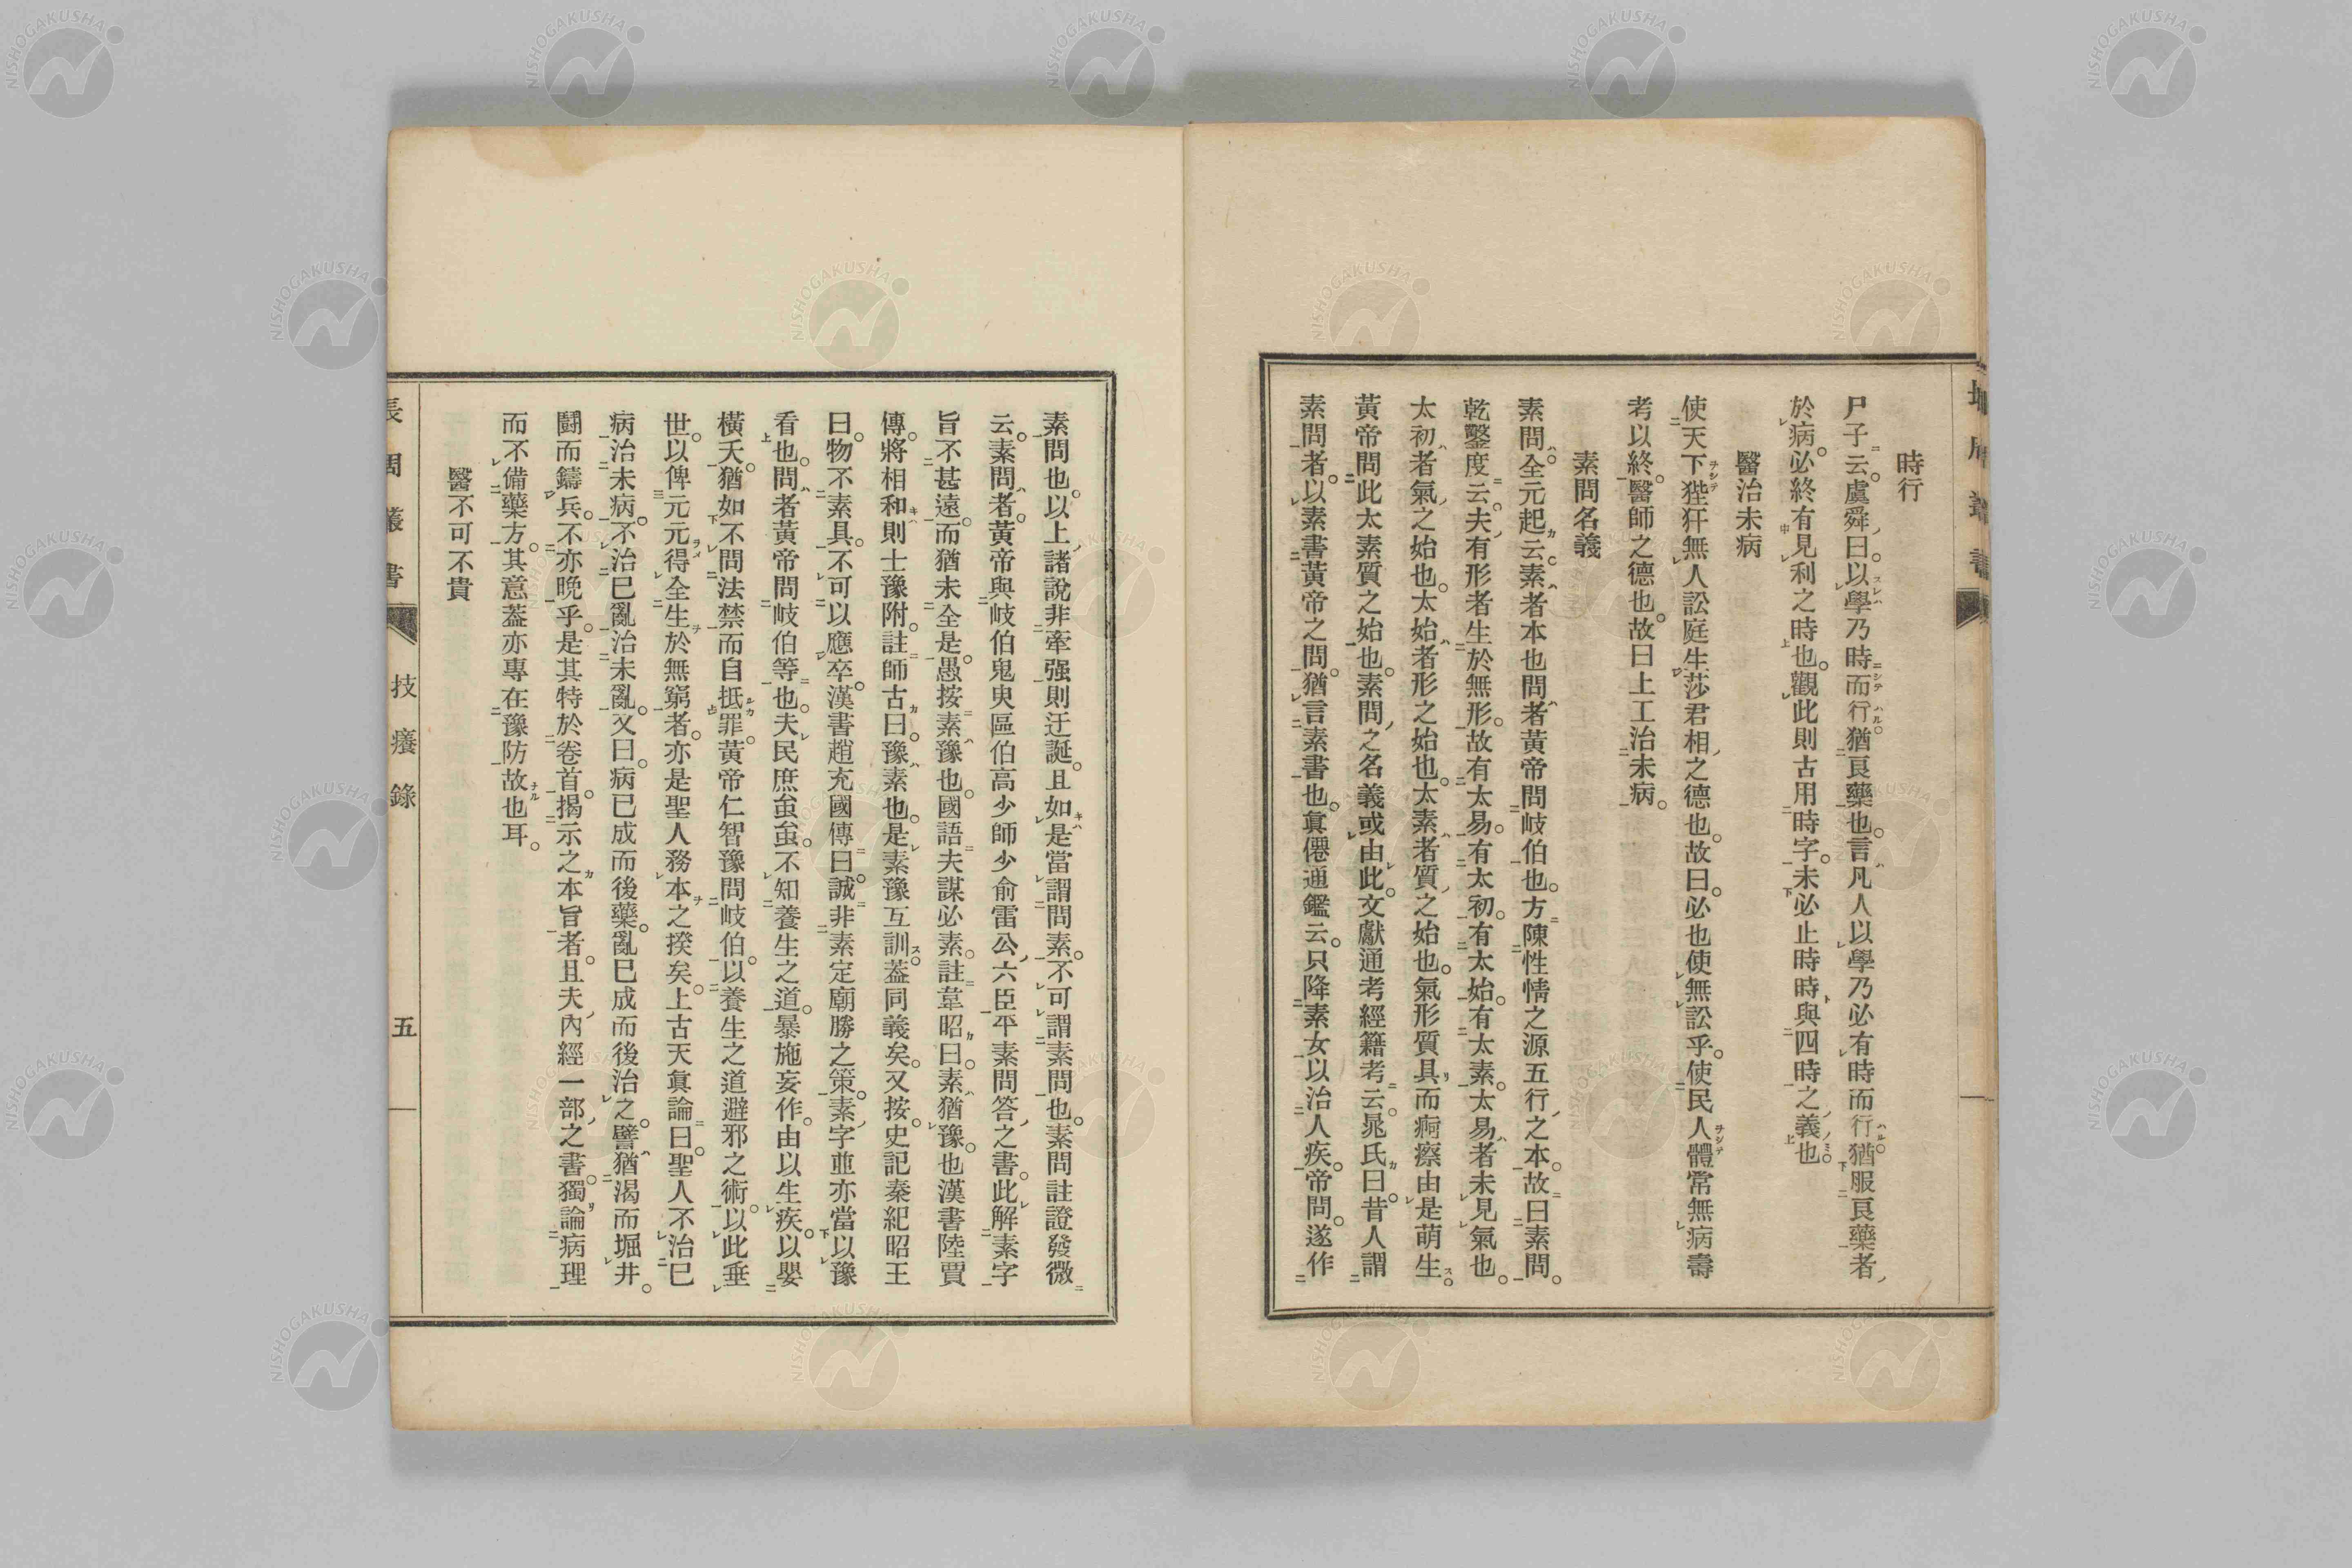 時行
尸子云。虞舜曰。以學乃時而行猶良藥也。言凡人以學乃必有時而行猶服良藥者
於病。必終有見利之時也。觀此則古用時字。未必止時時與四時之義也。
醫治未病
使天下狴犴無人訟庭生莎君相之德也。故曰。必也使無訟乎。使民人體常無病壽
考以終。醫師之德也。故曰上工治未病。
素問名義
素問。全元起云。素者本也問者黃帝問岐伯也。方陳性情之源五行之本。故曰素問。
乾鑿度云。夫有形者生於無形。故有太易。有太初。有太始。有太素。太易者未見氣也。
太初者氣之始也。太始者形之始也。太素者質之始也。氣形質具而痾瘵由是萌生。
黃帝問此太素質之始也。素問之名義或由此。文獻通考經籍考云。晁氏曰。昔人謂
素問者。以素書黃帝之問。猶言素書也。眞僊通鑑云。只降素女以治人疾。帝問。遂作
素問也。以上諸說非牽强則迂誕。且如是當謂問素。不可謂素問也。素問註證發微
云。素問者。黃帝與岐伯鬼臾區伯高少師少俞雷公六臣平素問答之書。此解素字
旨不甚遠。而猶未全是。愚按素豫也。國語夫謀必素。註韋昭曰。素猶豫。也漢書陸賈
傳。將相和則士豫附。註師古曰。豫素也。是素豫互訓。葢同義矣。又按。史記秦紀昭王
曰。物不素具。不可以應卒。漢書趙充國傳曰。誠非素定廟勝之策。素字並亦當以豫
看也。問者黃帝問岐伯等也。夫民庶蚩蚩。不知養生之道。暴施妄作。由以生疾。以嬰
橫夭。猶如不問法禁而自抵罪。黃帝仁智豫問岐伯。以養生之道避邪之術。以此垂
世。以俾元元得全生於無窮者。亦是聖人務本之揆矣。上古天眞論曰。聖人不治已
病治未病。不治已亂治未亂。又曰。病已成而後藥。亂已成而後治之。譬猶渴而堀井。
鬪而鑄兵。不亦晚乎。是其特於卷首。揭示之本旨者。且夫內經一部之書。獨論病理
而不備藥方。其意葢亦專在豫防故也耳。
醫不可不貴
技癢錄
五